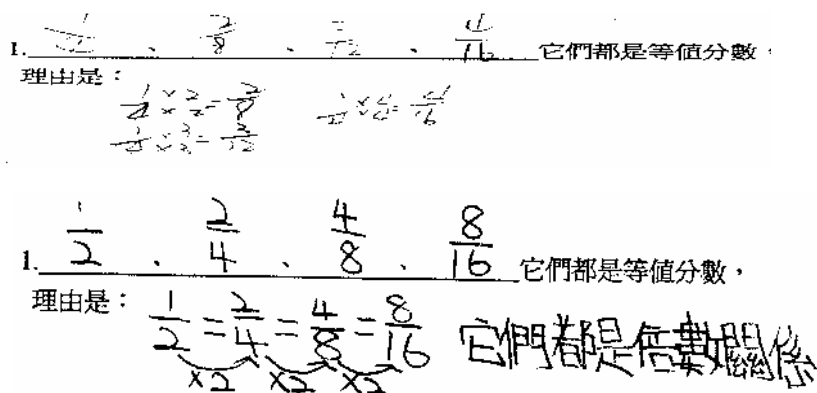 1. 1/4、2/8、3/12、4/16 它們都是等值分數,
理由是:
1×2/4×2=2/8 1×4/4×4=4/16
1×3/4×3=3/12
1. 1/2、2/4、4/8、8/16 它們都是等值分數,
理由是: 1/2=2/4=4/8=8/16 它們都是倍數關係
×2 ×2 ×2